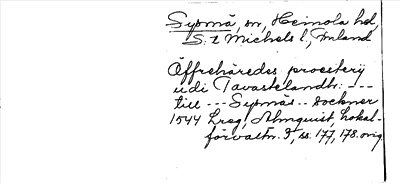 Sysmä, sn, Heinola hd,
S:t Michels l., Finland
Äffrehäredes proesterij
udi Tavastelandh: ---
till --- Sysmäs -- sockner
1544 Lreg, Almquist, Lokal-
förvaltn. I, ss. 177, 178. orig